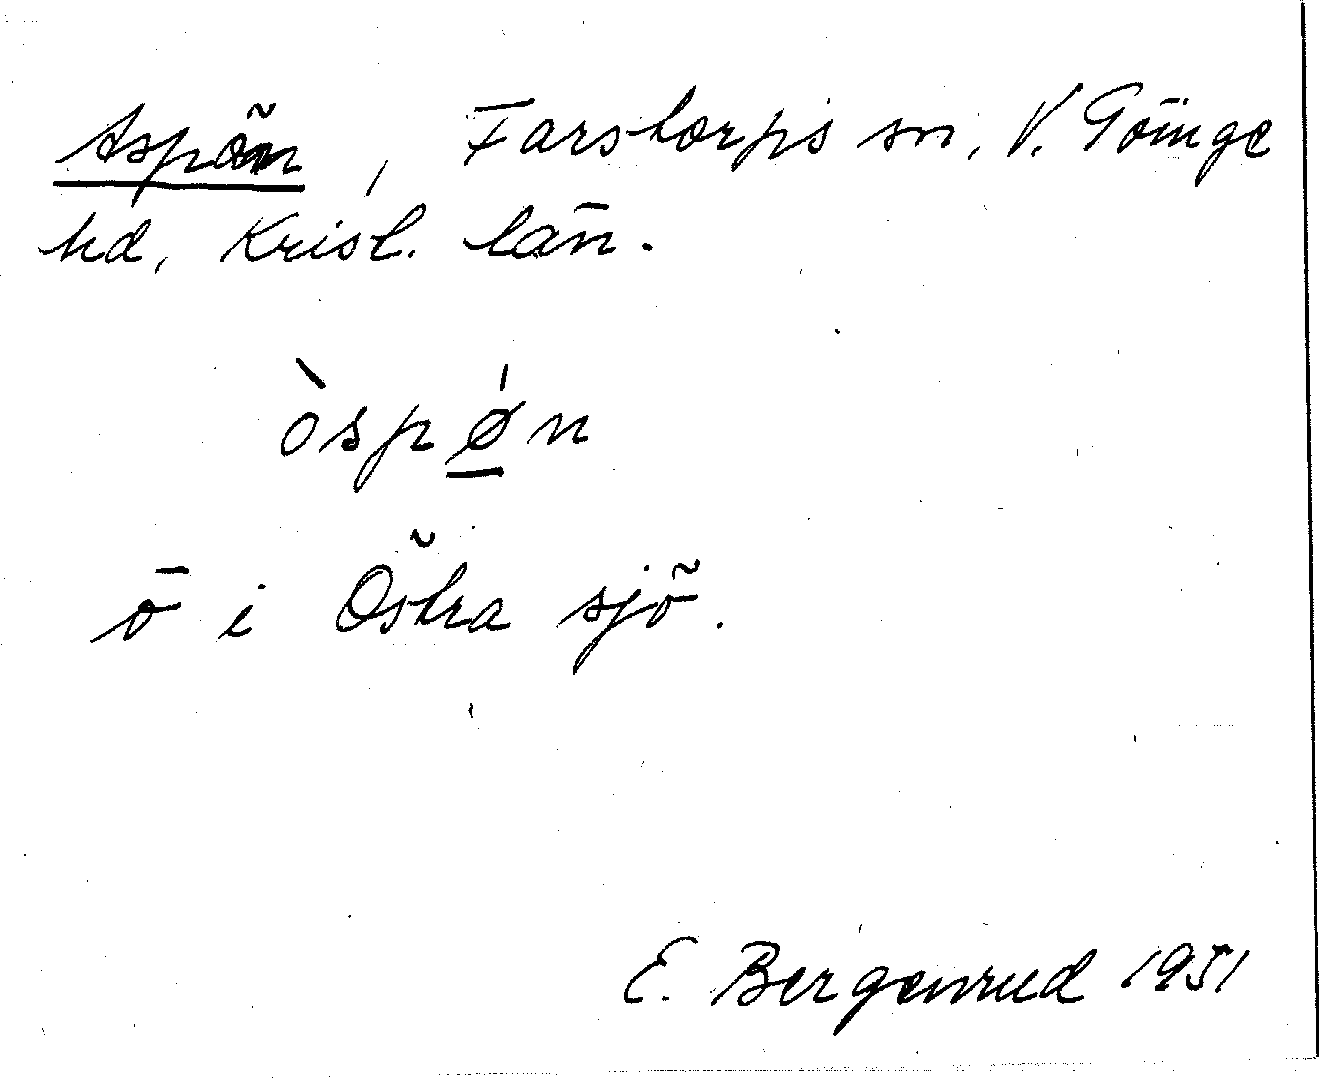 Aspön, Farstorps sn, V. Göinge
hd, Krist. län.
òspǿ̲n
ö i Östra sjö.
E. Bergenrud 1951